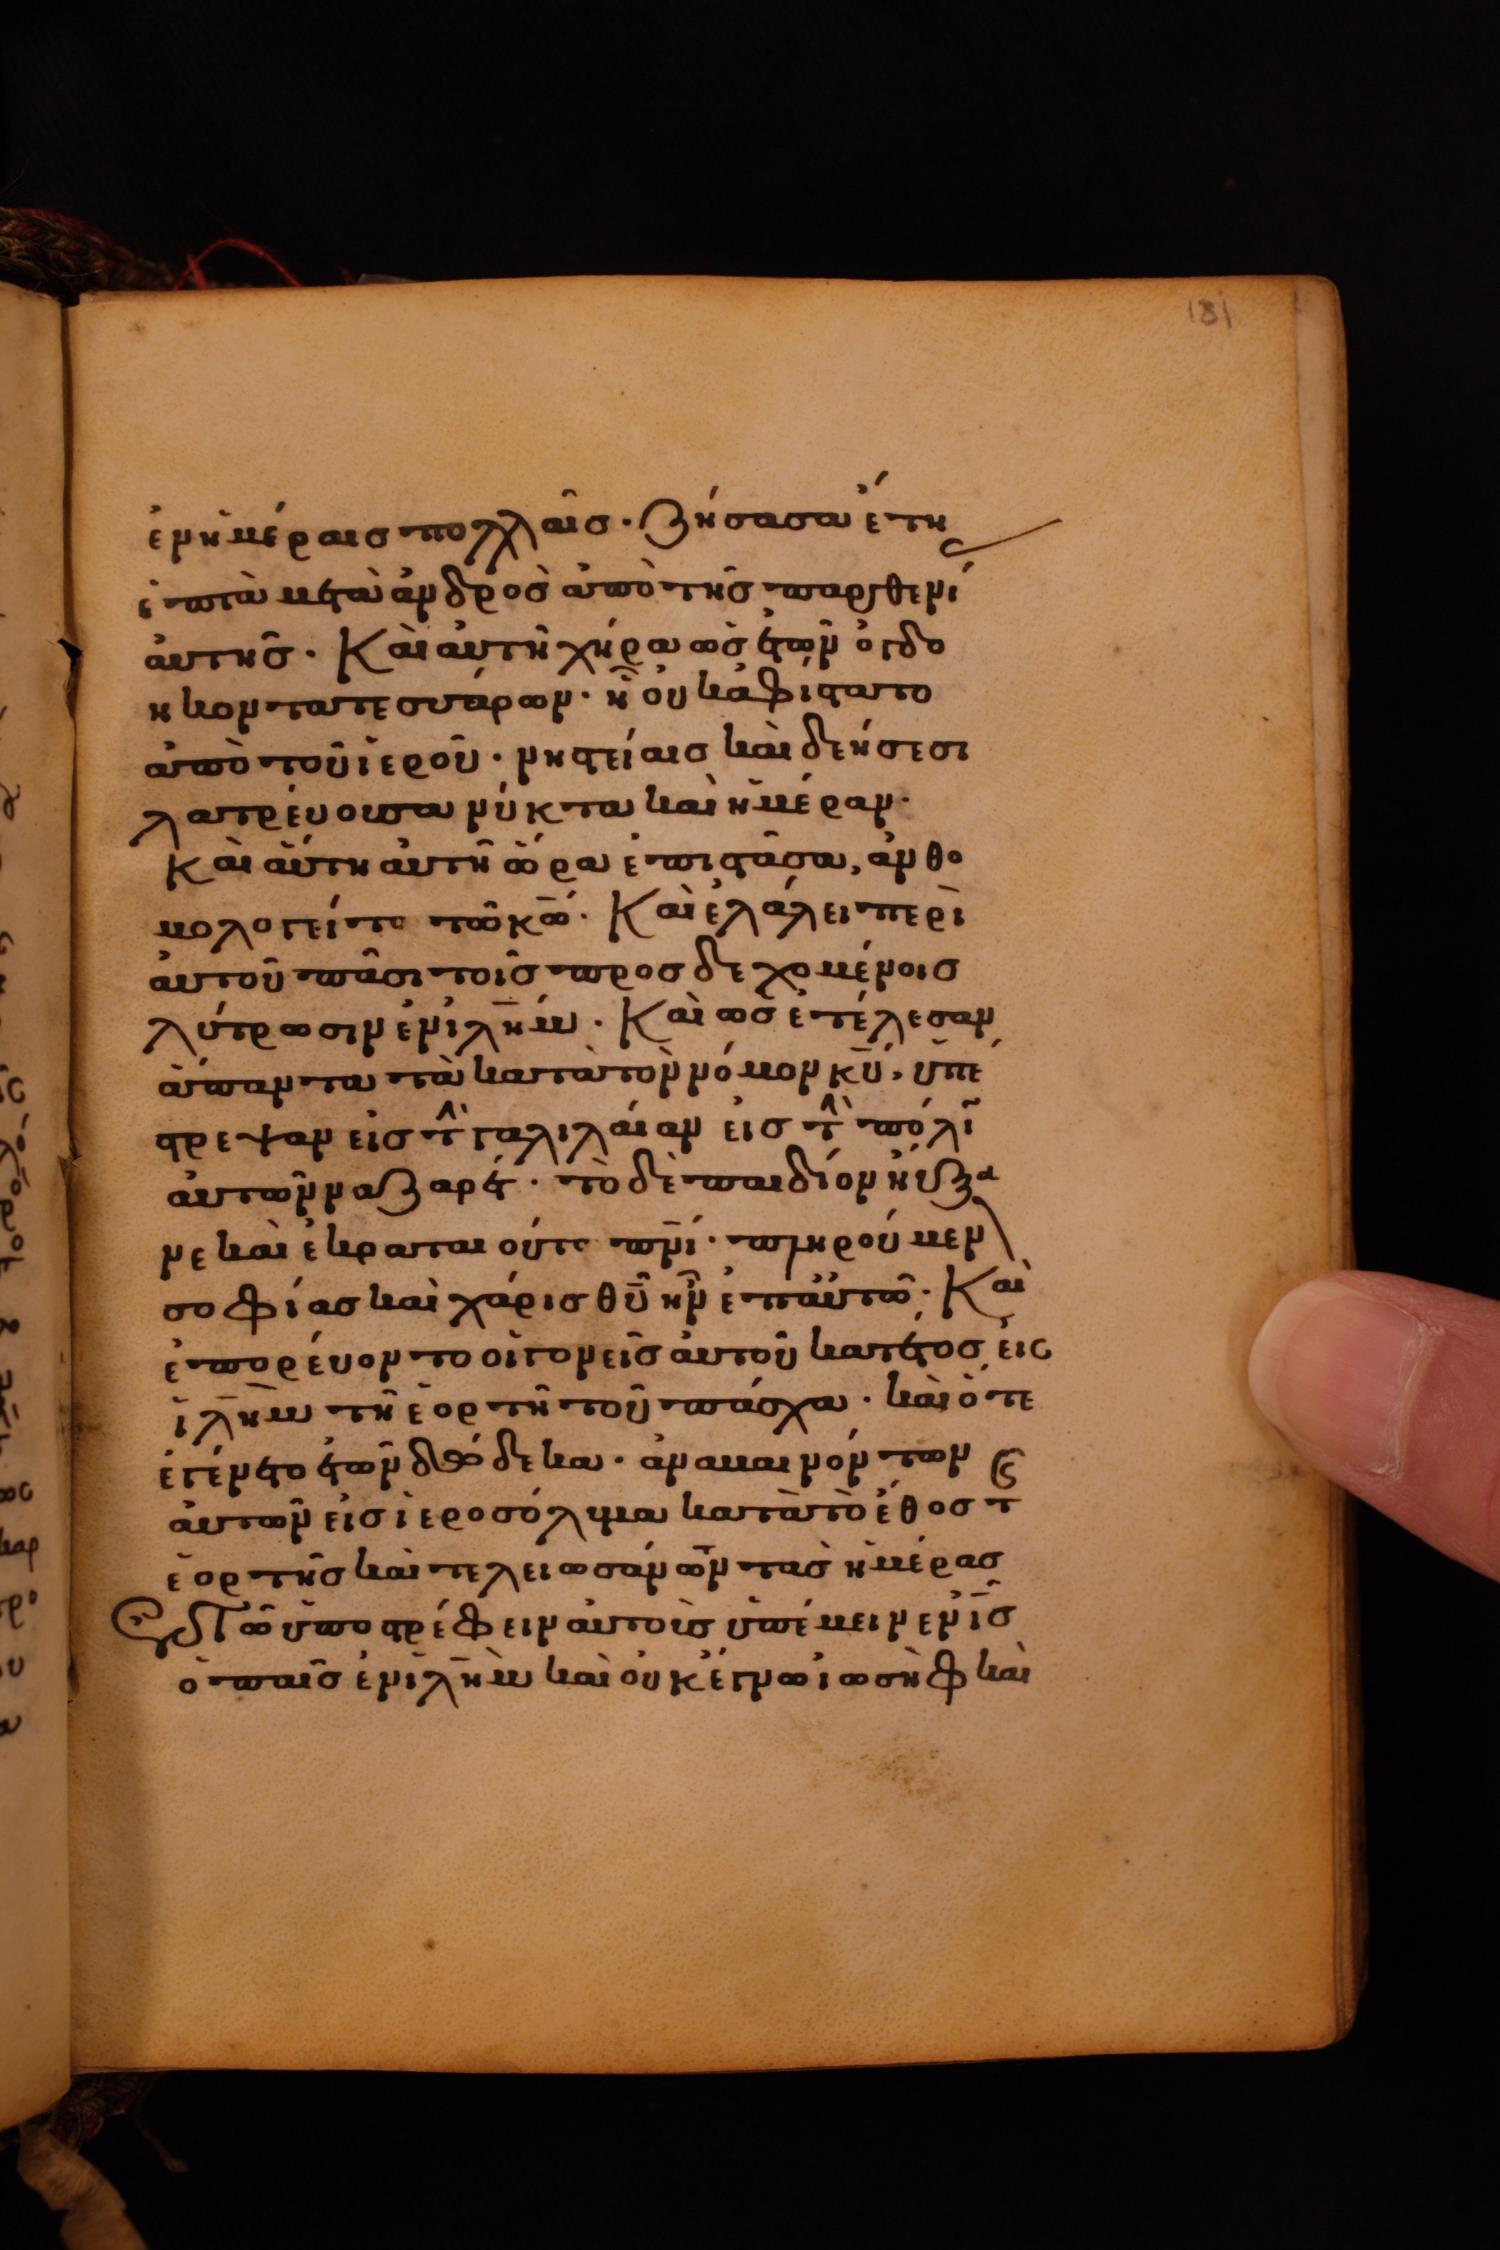 181
ἐν ἡμέραις πολλαῖς· Ζήσασα ἔτη
ἑπτὰ μετὰ ἀνδρὸς ἀπὸ τῆς παρθενί
αὐτῆς· Καὶ αὐτὴ χήρα ὡς ἐτῶν ὀγδο
ηκοντατεσσάρων· ἣ οὐκ ἀφίστατο
ἀπὸ τοῦ ἱεροῦ· νηστείαις καὶ δεήσεσι
λατρεύουσα νύκτα καὶ ἡμέραν·
Καὶ αὕτη αὐτῇ ὥρα ἐπιστᾶσα, ἀνθο
μολογεῖτο τῶ κω̅· Καὶ ἐλάλει περὶ
αὐτοῦ πᾶσι τοῖς προσδεχομένοις
λύτρωσιν ἐν ἰλη̅μ· Καὶ ὡς ἐτέλεσαν
ἅπαντα τὰ κατὰ τὸν νόμον κυ̅, ὑπέ
στρεψαν εἰς τ̂ γαλιλαίαν εἰς τ̂ πόλι̅
αὐτῶν ναζαρέτ· τὸ δὲ παιδίον ηὔξα
νε καὶ ἐκραταιοῦτο πνι̅· πληρούμεν
σοφίας καὶ χάρις θυ̅ ἦν ἐπ αὐτῶ· Καὶ
ἐπορεύοντο οἱ γονεῖς αὐτοῦ κατ ἔτος εἰς
ἰλη̅μ τῆ ἑορτῆ τοῦ πάσχα· καὶ ὅτε
ἐγένετο ἐτῶν δώδεκα· ἀναβαινόντων
αὐτῶν εἰς ἱεροσόλυμα κατὰ τὸ ἔθος τ
ἑορτῆς καὶ τελειωσάντων τὰς ἡμέρας
Ἐν τῶ ὑποστρέφειν αὐτοὺς ὑπέμεινεν ι̅ς
ὁ παῖς ἐν ἰλη̅μ καὶ οὐκ ἔγνω ἰωσὴφ καὶ